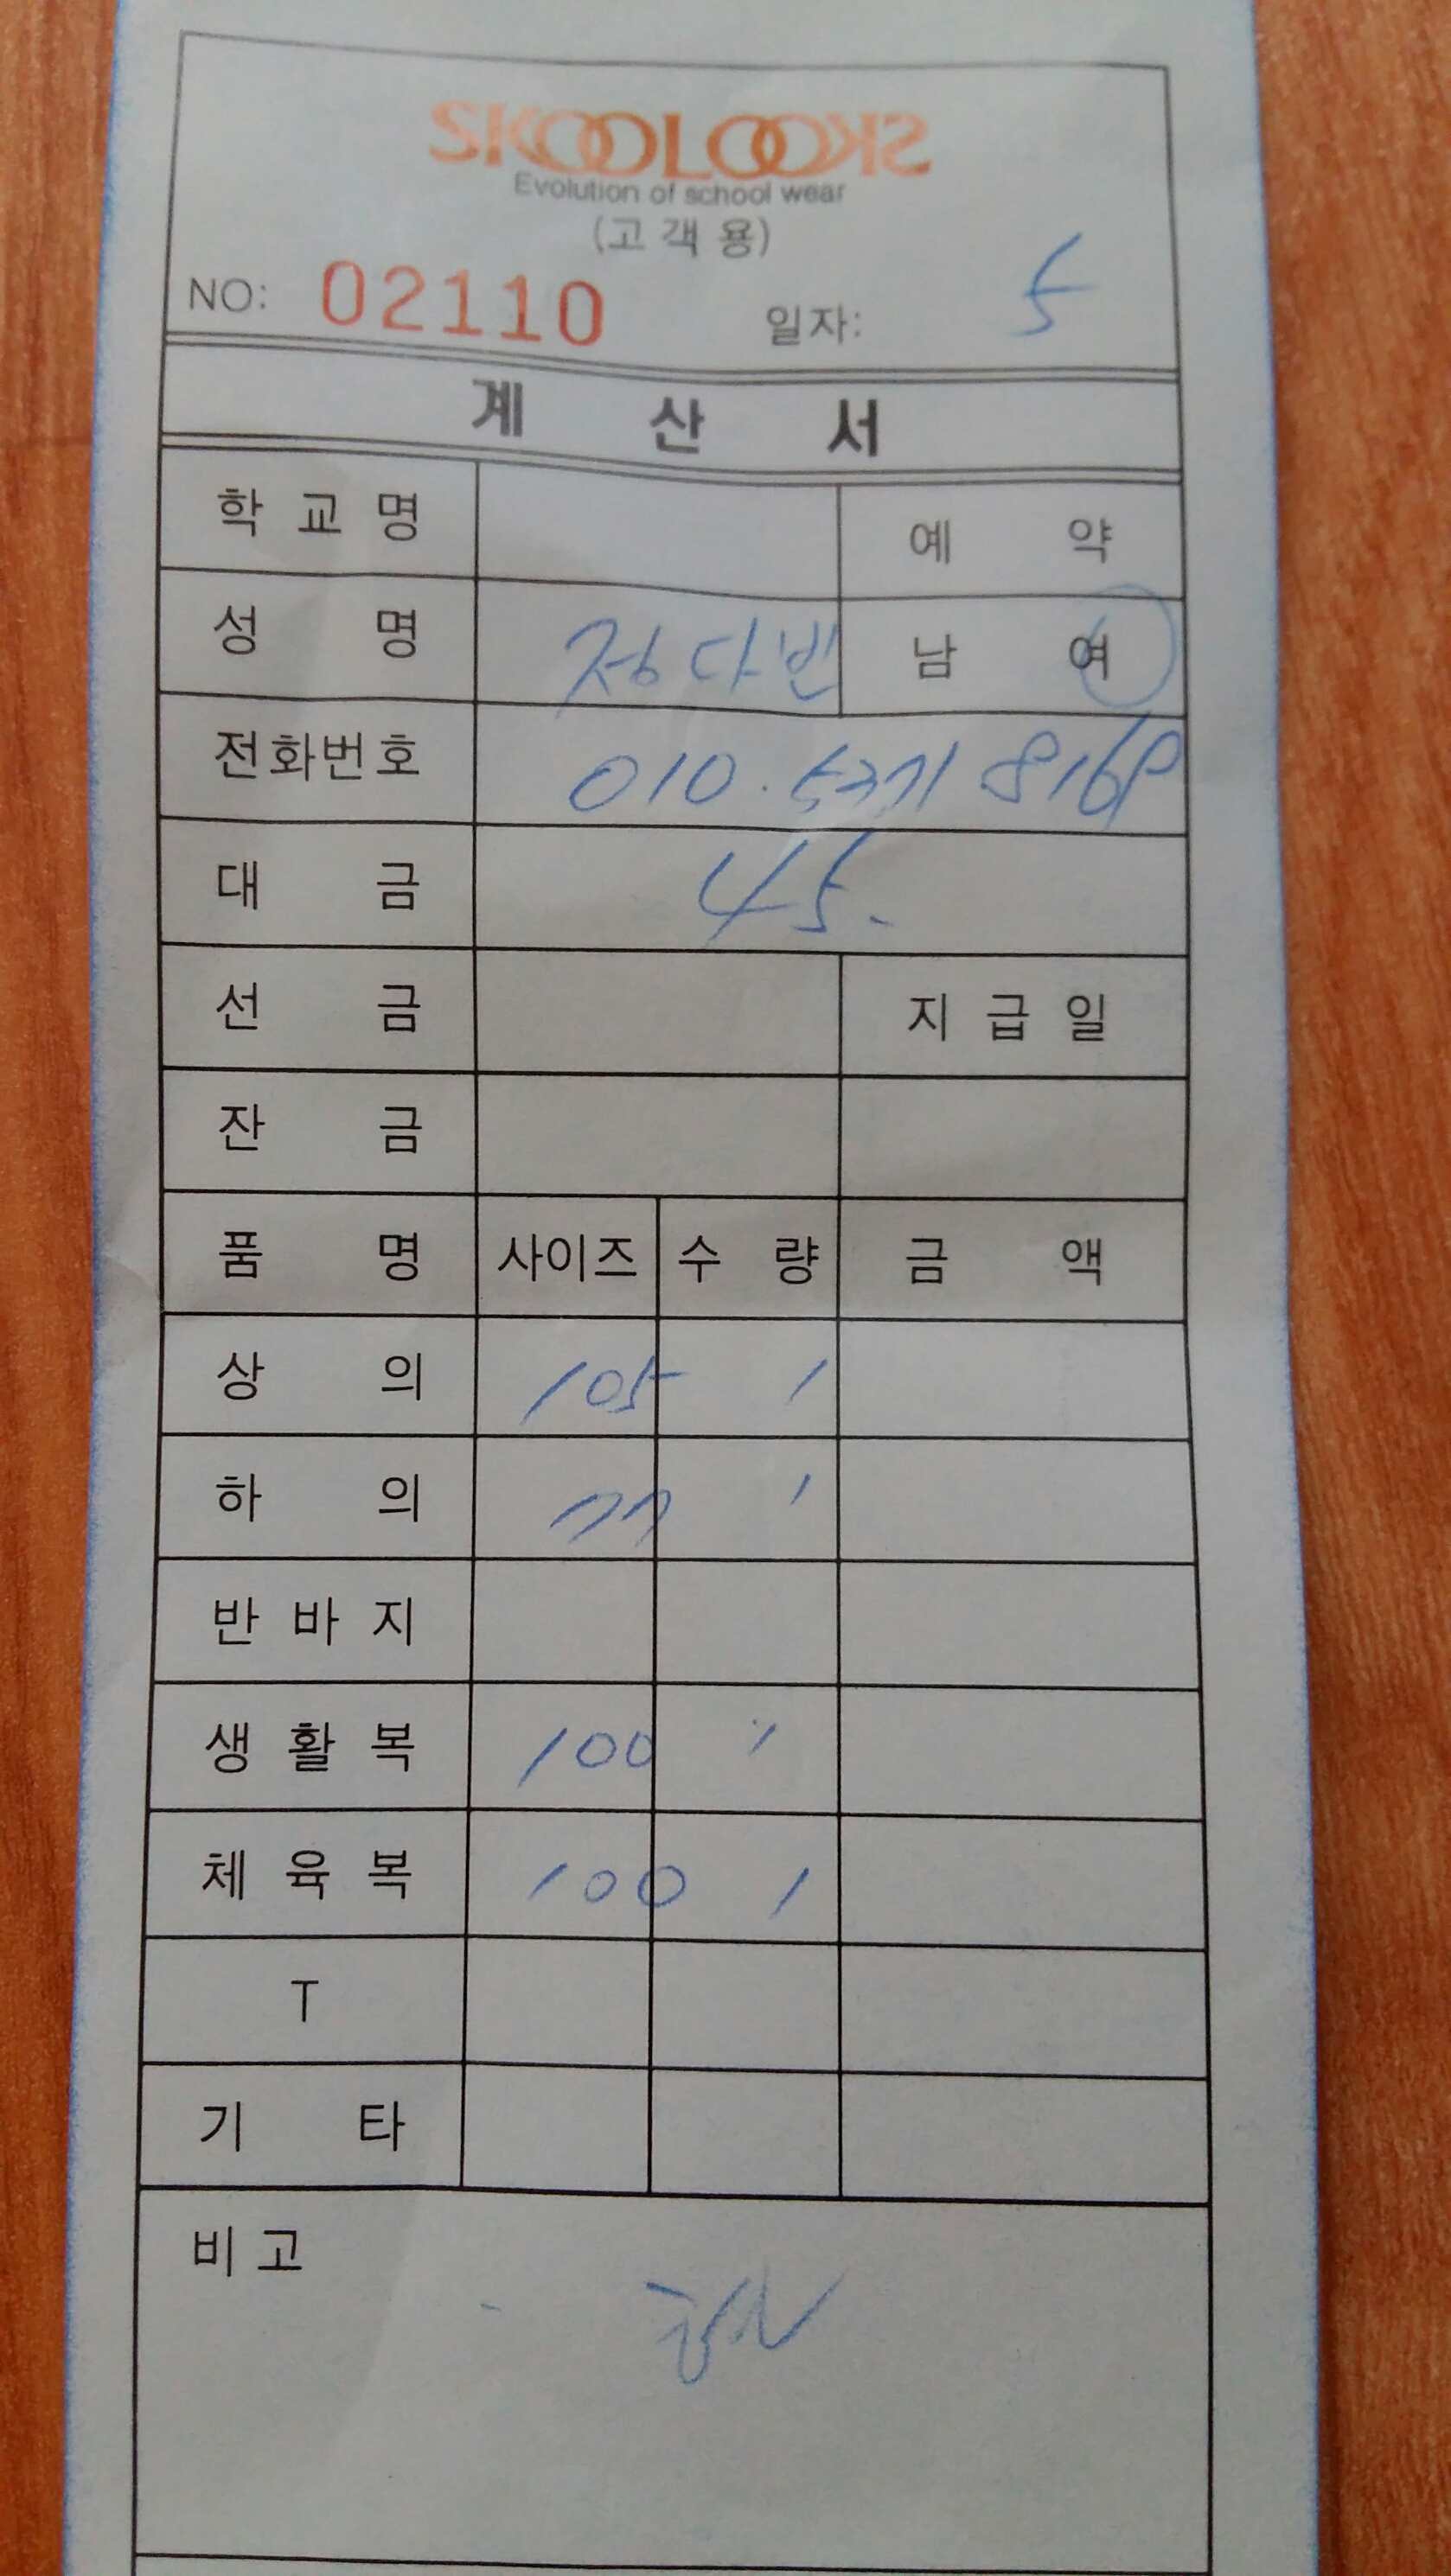 SKOOLOOKS
Evolution of school wear
(고객용)
NO: 02110 일자: 5
계 산 서
학 교 명 예 약
성 명 정다빈 남 여
전화번호 010.
대 금 45.
선 금 지 급 일
잔 금
품 명 사이즈 수 량 금 액
상 의 105 1
하 의 77 1
반 바 지
생 활 복 100 1
체 육 복 100 1
T
기 타
비 고